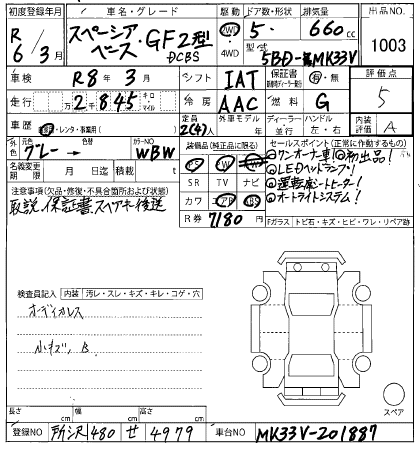 初度登録年月 車名・グレード 駆動 ドア数・形状 排気量 出品NO
R 6/3月 スペーシア ベース・GF2型 DCBS 2WD 4WD 5・ 660 cc 1003
型式 5BD-MK33V
車検 R8年3月 シフト IAT 保証書 有・無 評価点
走行 万2,845 キロ・マイル 冷房 AAC 燃料 G 5
車歴 自家用・レンタ・事業用( ) 定員 2(4)人 外車モデル 年 ディーラー・並行 ハンドル 左・右 内装評価 A
外色 元色 グレー → 色替 カラーNO WBW
名義変更期限 月 日迄 積載 t
装備品(純正品に限る) PS PW
SR TV ナビ
カワ エアB ABS
R券 7180円
セールスポイント(正常に作動するもの)
◎ワンオーナー車!◎初出品!
◎LEDヘッドランプ!
◎運転席シートヒーター!
◎オートライトシステム!
注意事項(欠品・修復・不具合箇所および状態)
取説、保証書、スペアキー後送
Fガラス トビ石・キズ・ヒビ・ワレ・リペア跡
検査員記入 内装 汚レ・スレ・キズ・キレ・コゲ・穴
オーディオレス
小キズ、B
スペア
長さ cm 幅 cm 高さ cm
登録NO 所沢 480 せ 4979 車台NO MK33V-201887